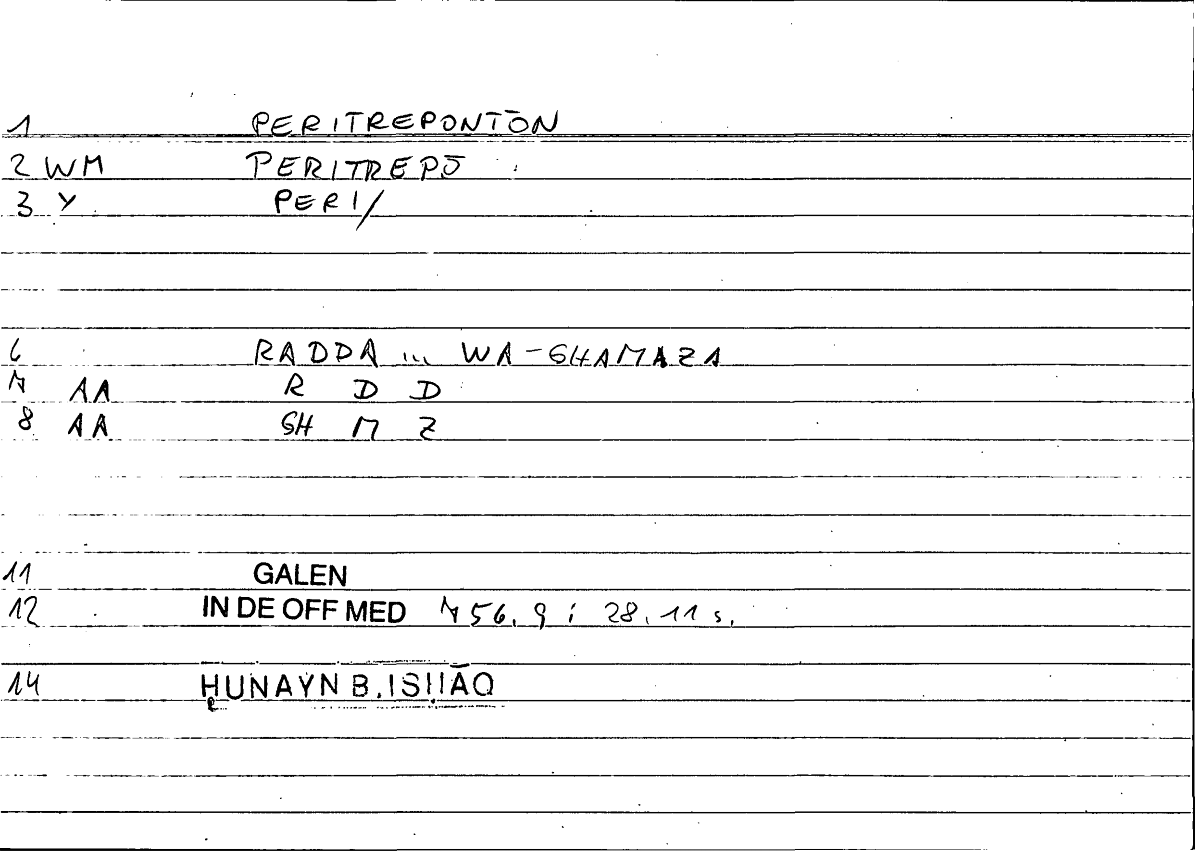 1 PERITREPONTŌN
2 WM PERITREPŌ
3 Y PERI/
6 RADDA ... WA-SHAMAZA
7 AA R D D
8 AA SH M Z
11 GALEN
12 IN DE OFF MED 756.9 ; 28.11 s.
14 ḤUNAYN B. ISḤĀQ